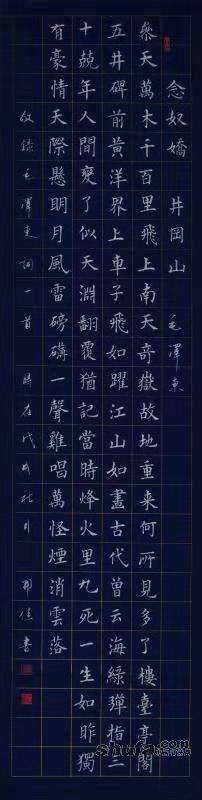 念奴嬌 井岡山 毛澤東
參天萬木千百里飛上南天奇嶽故地重來何所見多了樓臺亭閣
五井碑前黃洋界上車子飛如躍江山如畫古代曾云海綠彈指三
十兢年人間變了似天淵翻覆猶記當時烽火里九死一生如昨獨
有豪情天際懸明月風雷磅礴一聲雞唱萬怪煙消雲落
敬錄毛澤東詞一首 時在戊戌秋月 書